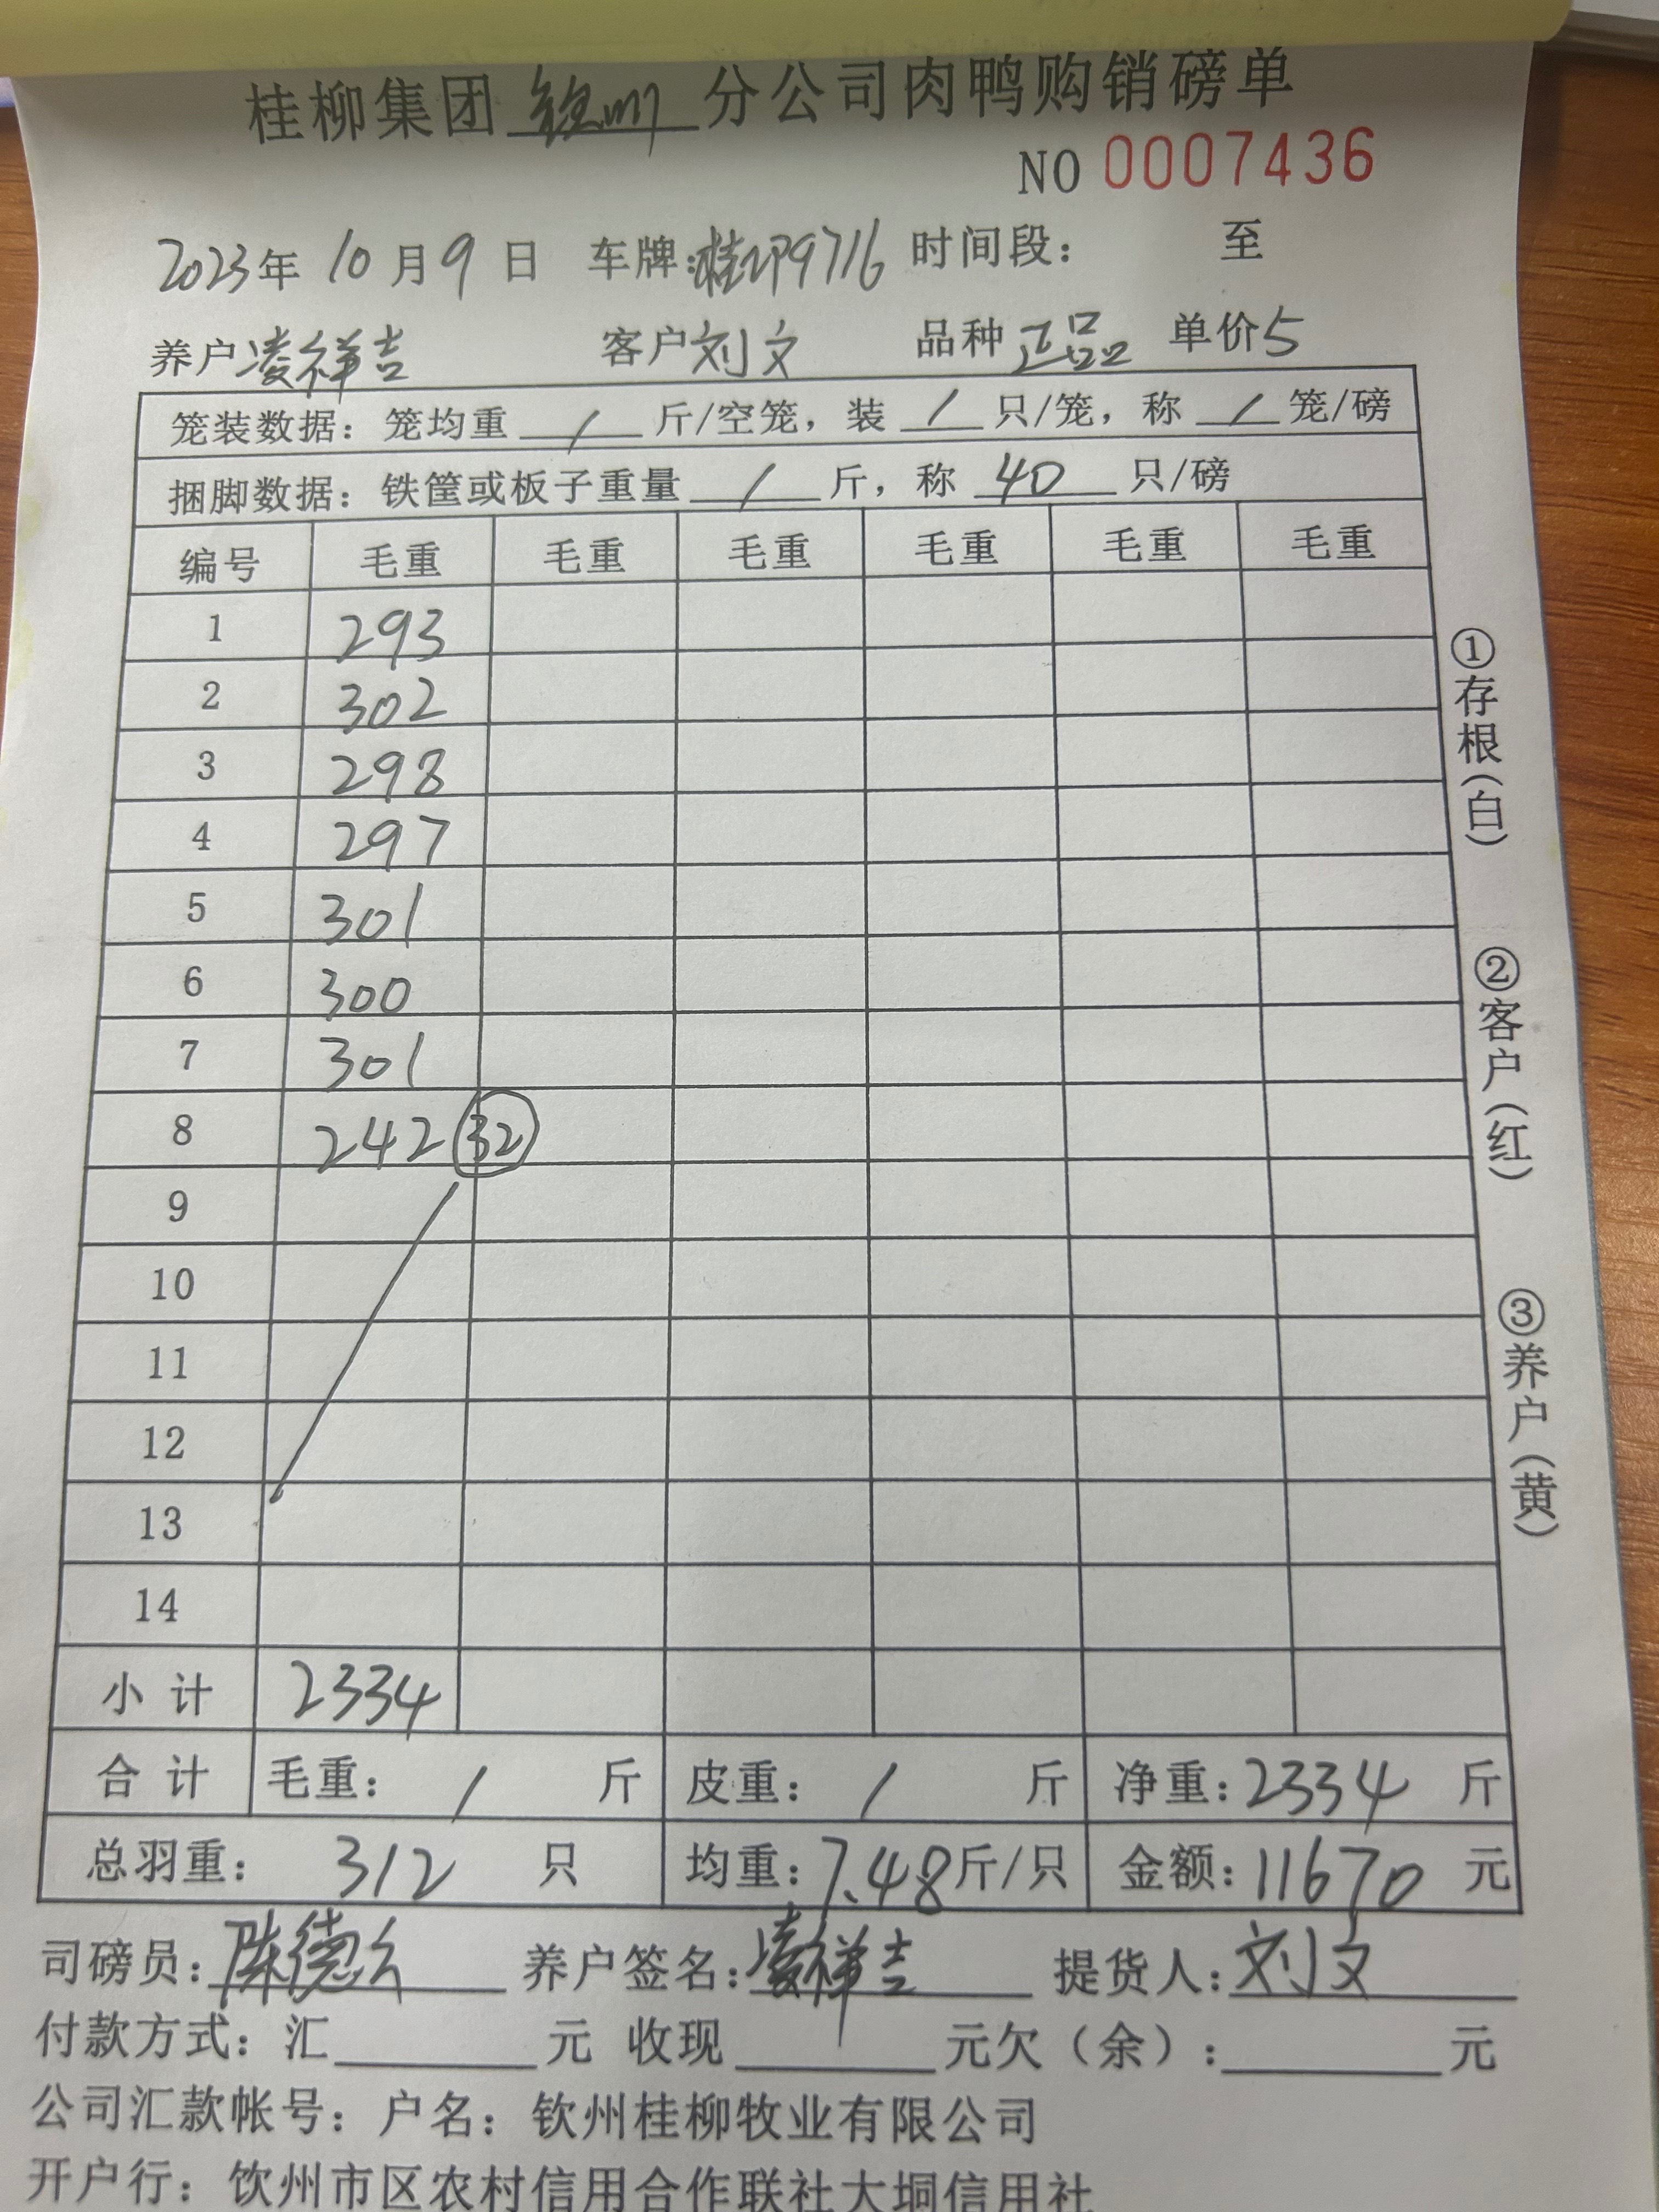 桂柳集团 钦州 分公司肉鸭购销磅单
NO 0007436
2023年 10月 9日 车牌:桂 9716 时间段: 至
养户 凌祥吉 客户 刘文 品种 正品 单价 5
笼装数据: 笼均重 / 斤/空笼, 装 / 只/笼, 称 / 笼/磅
捆脚数据: 铁筐或板子重量 / 斤, 称 40 只/磅
编号 毛重 毛重 毛重 毛重 毛重 毛重
1 293
2 302
3 298
4 297
5 301
6 300
7 301
8 242 32
9
10
11
12
13
14
小计 2334
合计 毛重: / 斤 皮重: / 斤 净重: 2334 斤
总羽重: 312 只 均重: 7.48 斤/只 金额: 11670 元
司磅员: 陈德 养户签名: 凌祥吉 提货人: 刘文
付款方式: 汇 元 收现 元欠(余): 元
公司汇款帐号: 户名: 钦州桂柳牧业有限公司
开户行: 钦州市区农村信用合作联社大垌信用社
①存根(白)
②客户(红)
③养户(黄)